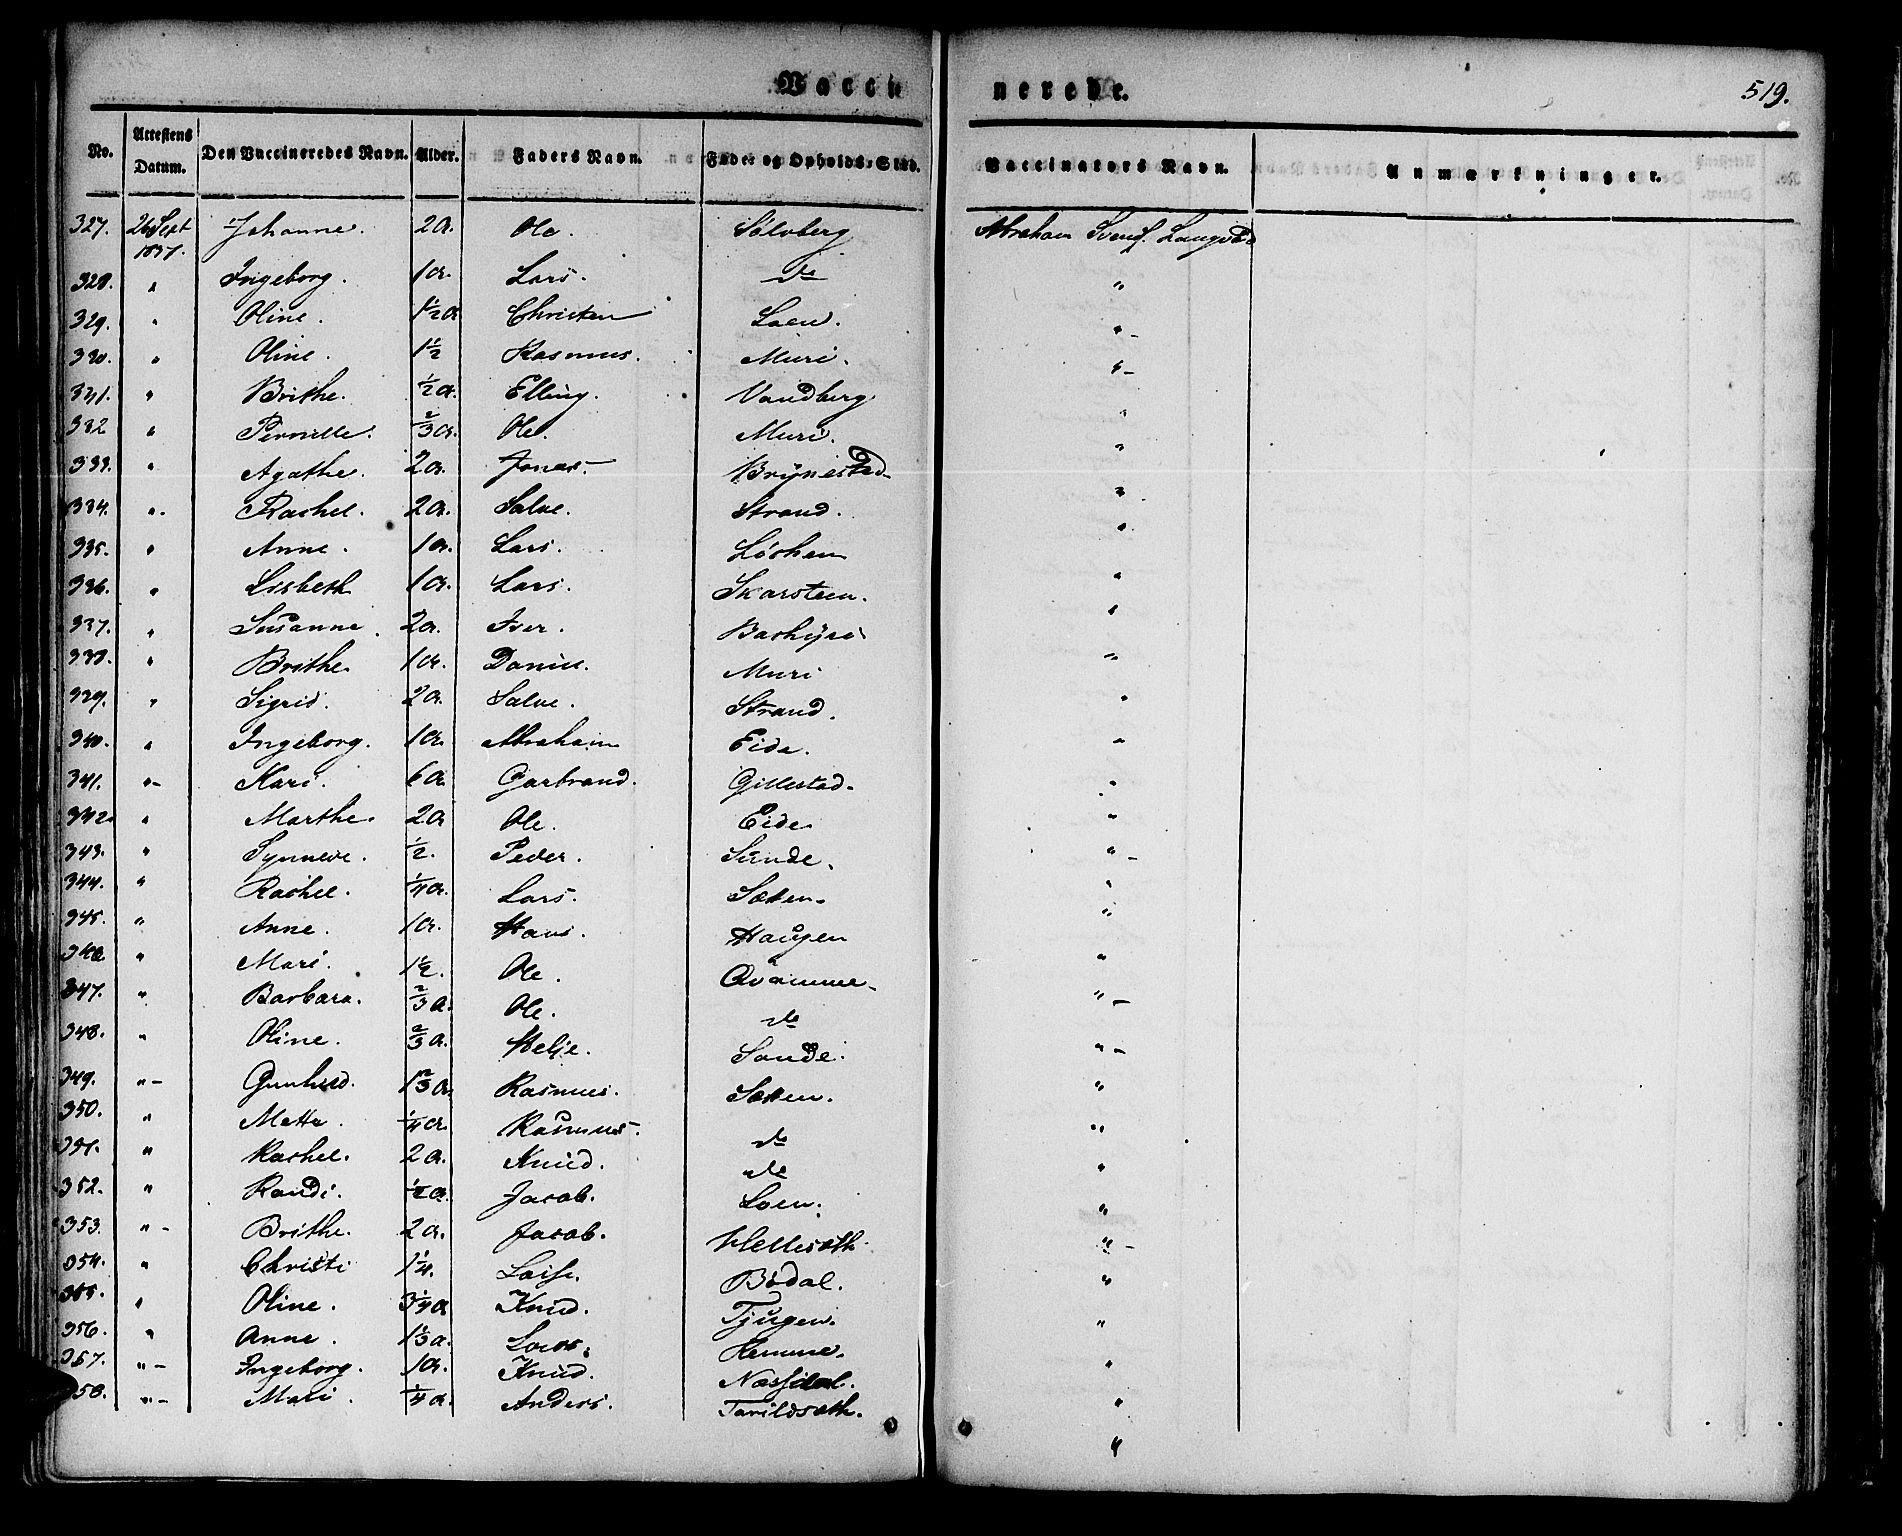 Vaccinerede.
519.
No. Attestens Datum. Den Vaccineredes Navn. Alder. Faders Navn. Føde- og Opholds-Sted. Vaccinators Navn. Anmærkninger.
327. 26 Sept 1837. Johanne. 2 a. Ole. Solvberg Abraham Svends.
328. " Ingeborg. 1 a. Lars. do "
329. " Oline. 1½ a Christen Loen. " -
330. " Oline. 1½ Rasmus. Muri. " -
331. " Brithe. ½ a. Elling. Vandberg "
332 " Pernille. 2/3 a. Ole. Muri. "
333. " Agathe. 2 a. Jonas. Brynestad "
334. " Rachel. 2 a. Salve. Strand. "
335. " Anne. 1 a. Lars. Løchen "
336. " Lisbeth 1 a. Lars. Skarsteen. "
337. " Susanne. 2 a. Iver. "
338. " Brithe. 1 a. Daniel. Muri "
339. " Sigrid. 2 a. Salve. Strand. "
340. " Ingeborg. 1 a. Abraham Eide. "
341. " - Kari. 6 a. Garbrand. Gillestad. "
342. " Marthe. 2 a Ole. Eide "
343. " Synneve. ½. Peder. Sunde. " -
344. " Rachel. ¼ a. Lars. Sætten. "
345. " Anne. 1 a. Hans. Haugen "
346 " Mari. 1½. Ole. Qvamme. "
347. " Barbara. 2/3 a. Ole. do " -
348. " Oline. 2/3 a. Helje. Sande. " -
349. " - Gunhild. 1 2/3 a. Rasmus. Sætten. "
350. " Mette. ¼ a. Rasmus. do "
351. " Rachel. 2 a. Knud. do "
352. " Randi. ½ a. Jacob. Loen. "
353. " - Brithe. 2 a. Jacob. Hellesæth. " -
354. " Christi 1¼. Bødal. "
355. " Oline. 3¼ a Knud. Tjugen. "
356. " Anne. 1 1/3 a. Lars. Hemme. "
357. " - Ingeborg. 1 a. Knud. Næssdal. "
358. " - Mari. ¼ a. Anders. Tarildsæth. "